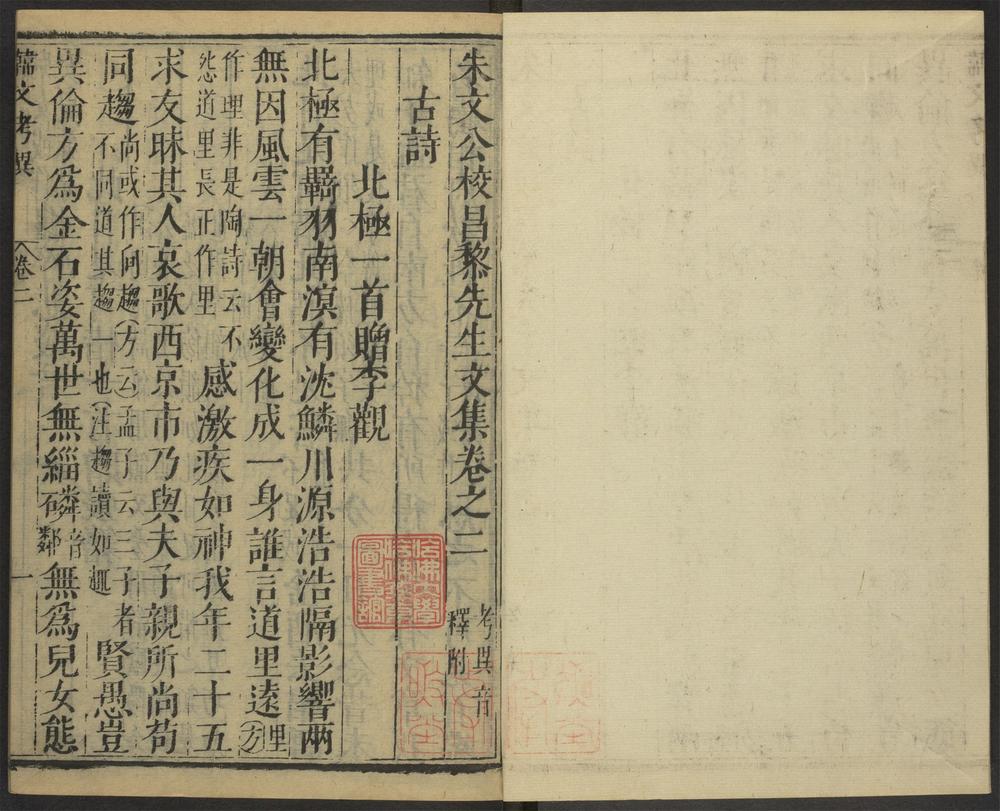 朱文公校昌黎先生文集卷之二 考異音釋附
古詩
北極一首贈李觀
北極有羇羽南溟有沈鱗川源浩浩隔影響兩
無因風雲一朝會變化成一身誰言道里遠 里方
作理非是陶詩云不
𢙢道里長正作里
感激疾如神我年二十五
求友昧其人哀歌西京市乃與夫子親所尚苟
同趨 尚或作向趨方云孟子云三子者
不同道其趨一也注趨讀如趣
賢愚豈
異倫方爲金石姿萬世無緇磷 音鄰 無爲兒女態
韓文考異
卷二
一
哈佛大學
哈佛燕京
圖書館